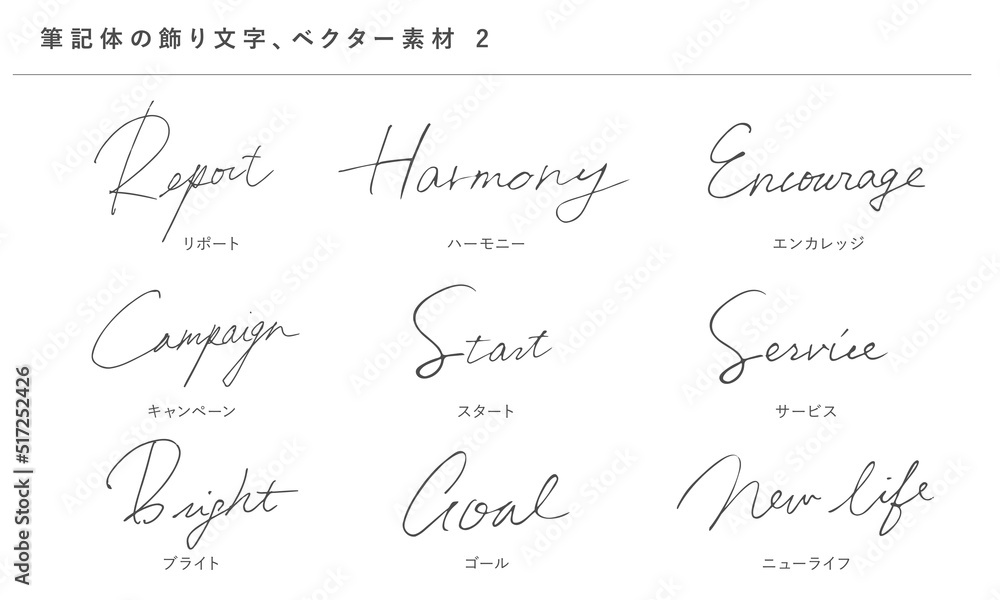 筆記体の飾り文字、ベクター素材 2
Report Harmony Encourage
リポート ハーモニー エンカレッジ
Campaign Start Service
キャンペーン スタート サービス
Bright Goal New life
ブライト ゴール ニューライフ
Adobe Stock | #517252426